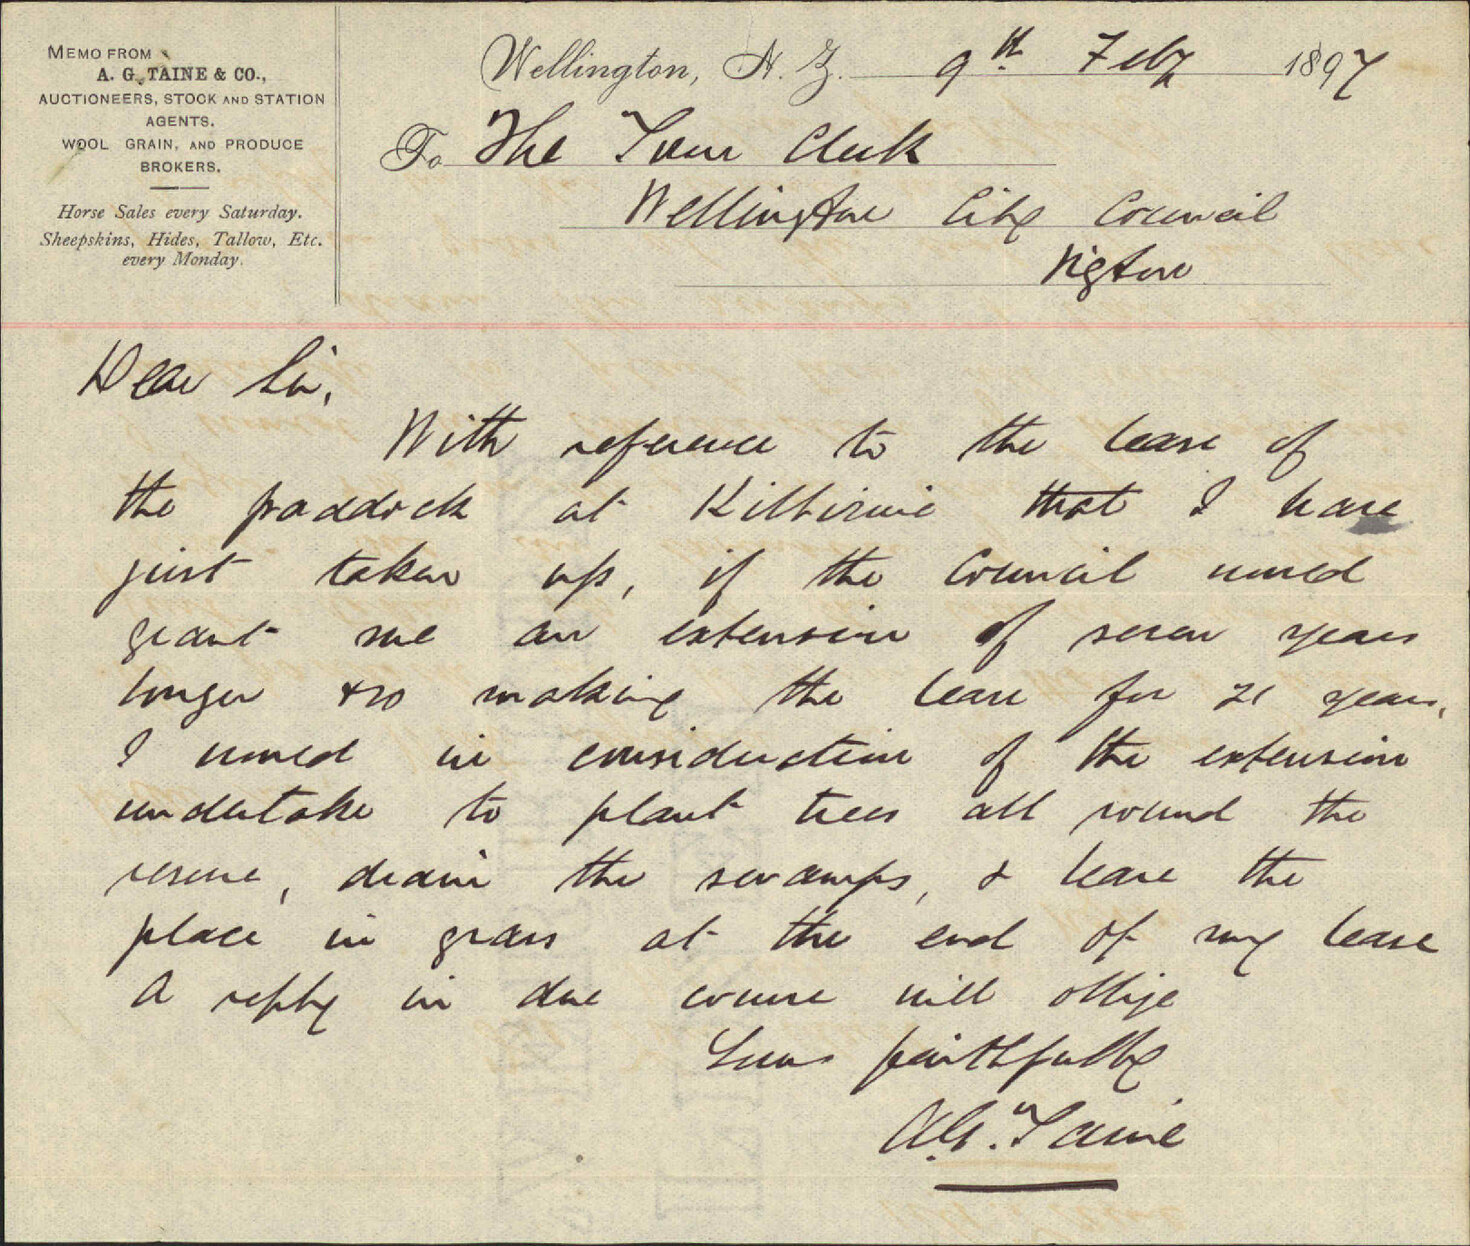 MEMO FROM
A. G. TAINE & CO.,
AUCTIONEERS, STOCK AND STATION
AGENTS.
WOOL GRAIN, AND PRODUCE
BROKERS.
Horse Sales every Saturday.
Sheepskins, Hides, Tallow, Etc.
every Monday.
Wellington, N. Z. 9th Feby 1897
To The Town Clerk
Wellington City Council
Wgton
Dear Sir,
With reference to the lease of
the paddock at Kilbirnie that I have
just taken up, if the Council would
grant me an extension of seven years
longer & so making the lease for 21 years,
I would in consideration of the extension
undertake to plant trees all round the
reserve, drain the swamps, & leave the
place in grass at the end of my lease
A reply in due course will oblige
Yours faithfully
A.G. Taine